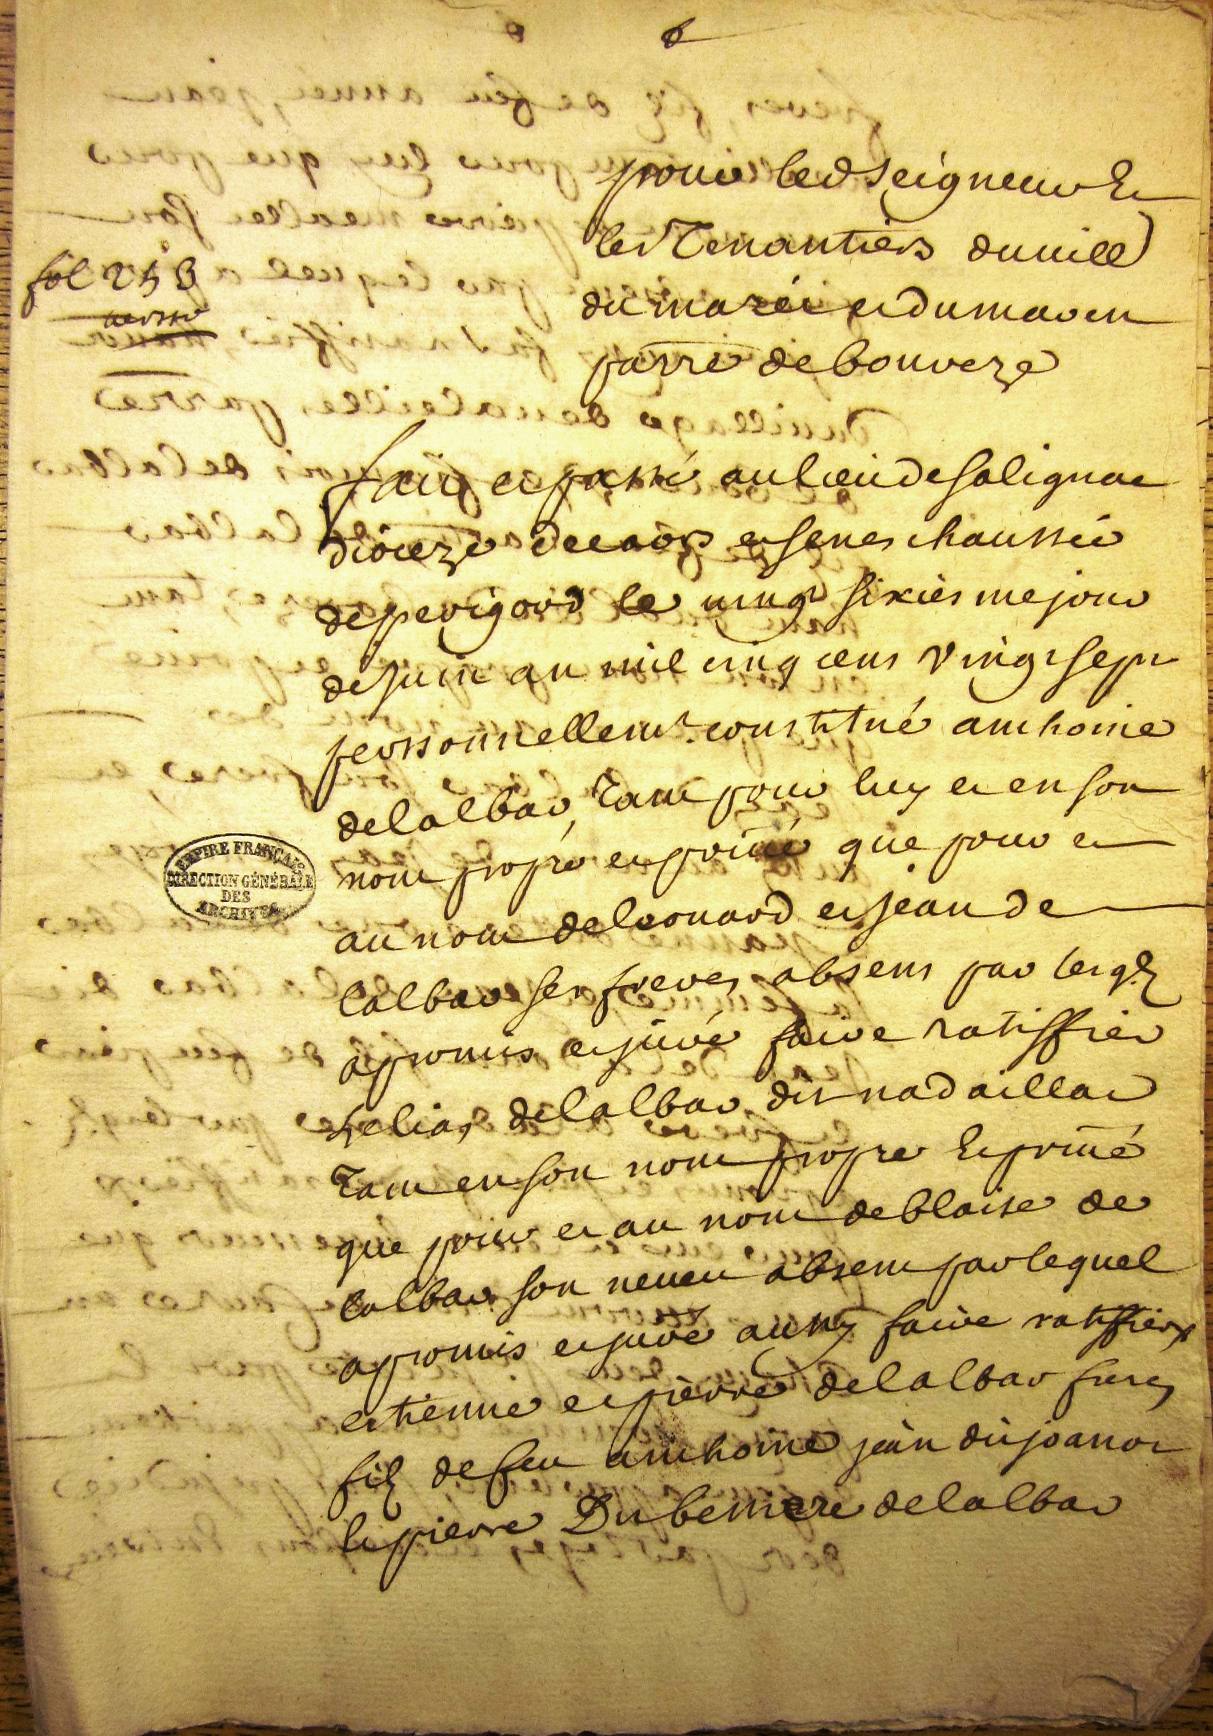 pour led seigneur Et
les Tenantiers du uill
du mazei et du maven
parre de bouveze
fol 253
verso
faict et passé au lieu de salignac
dioceze de caors et senes chaussée
de perigord le uingt sixies me jour
de juin an mil cinq cens vingt sept
personnellemt. constitué anthoine
delalbar, Tant pour luy et en son
nom propre et privé que pour et
au nom de leonard et jean de
lalbar ses freres absens par lesqlz
a promis et juré faire ratiffier
helias delalbar dit nadaillac
Tant en son nom propre Et privé
que pour et au nom de blaise de
lalbar son neveu absent par lequel
a promis et juré aussy faire ratiffier
estienne et pierre delalbar freres
filz de feu anthoine jean du joanot
et pierre Du delalbar
EMPIRE FRANÇAIS
DIRECTION GÉNÉRALE
DES
ARCHIVES